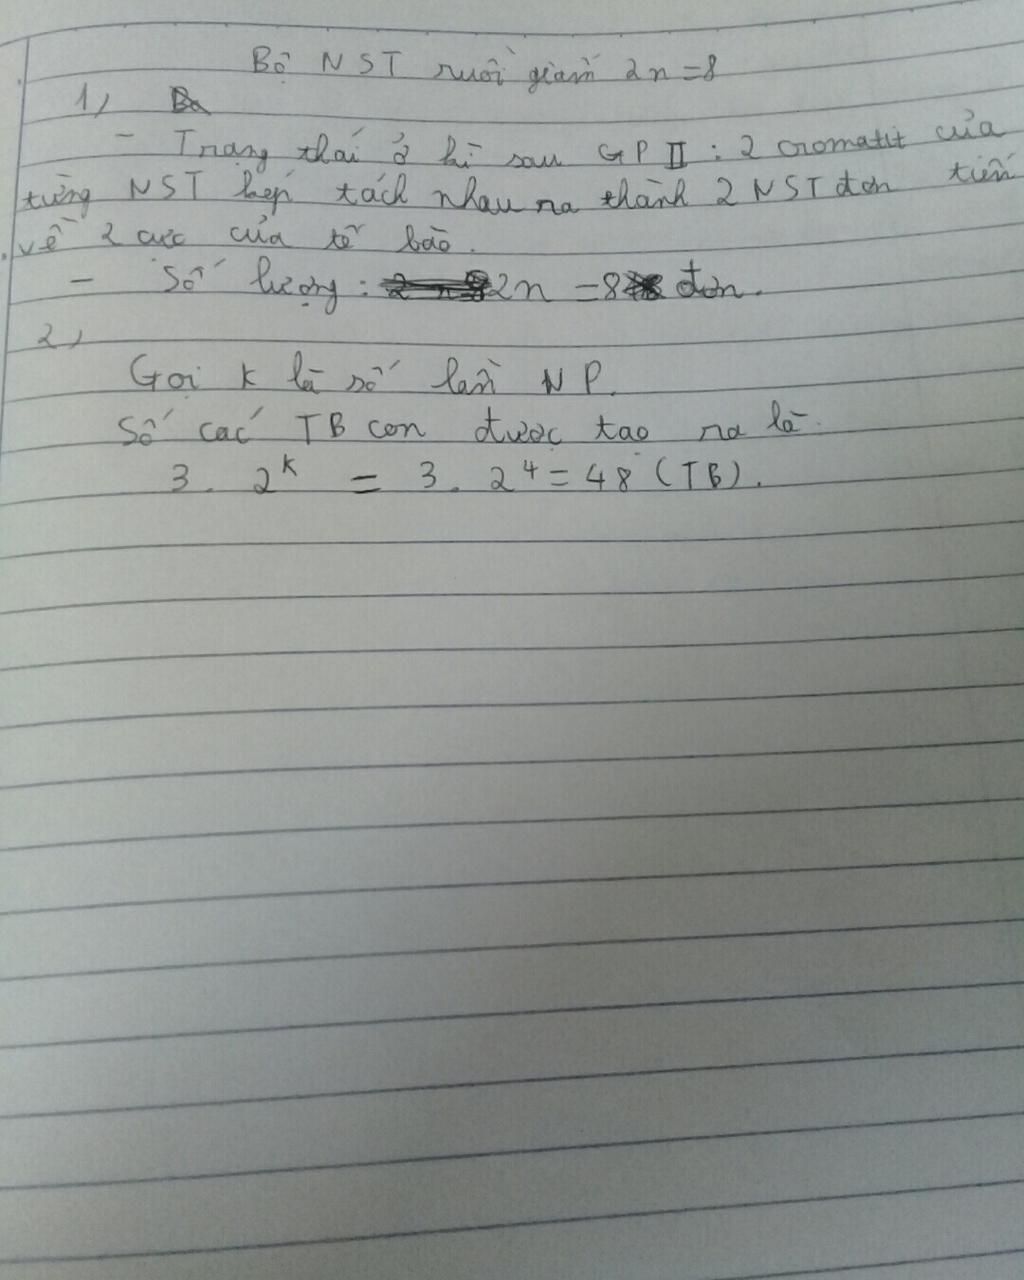 Bộ NST ruồi giấm 2n = 8
1)
- Trạng thái ở kì sau GP II : 2 cromatit của
từng NST kép tách nhau ra thành 2 NST đơn tiến
về 2 cực của tế bào.
- Số lượng : 2n = 8 đơn.
2)
Gọi k là số lần NP.
Số các TB con được tạo ra là
3 . 2^k = 3 . 2^4 = 48 (TB).